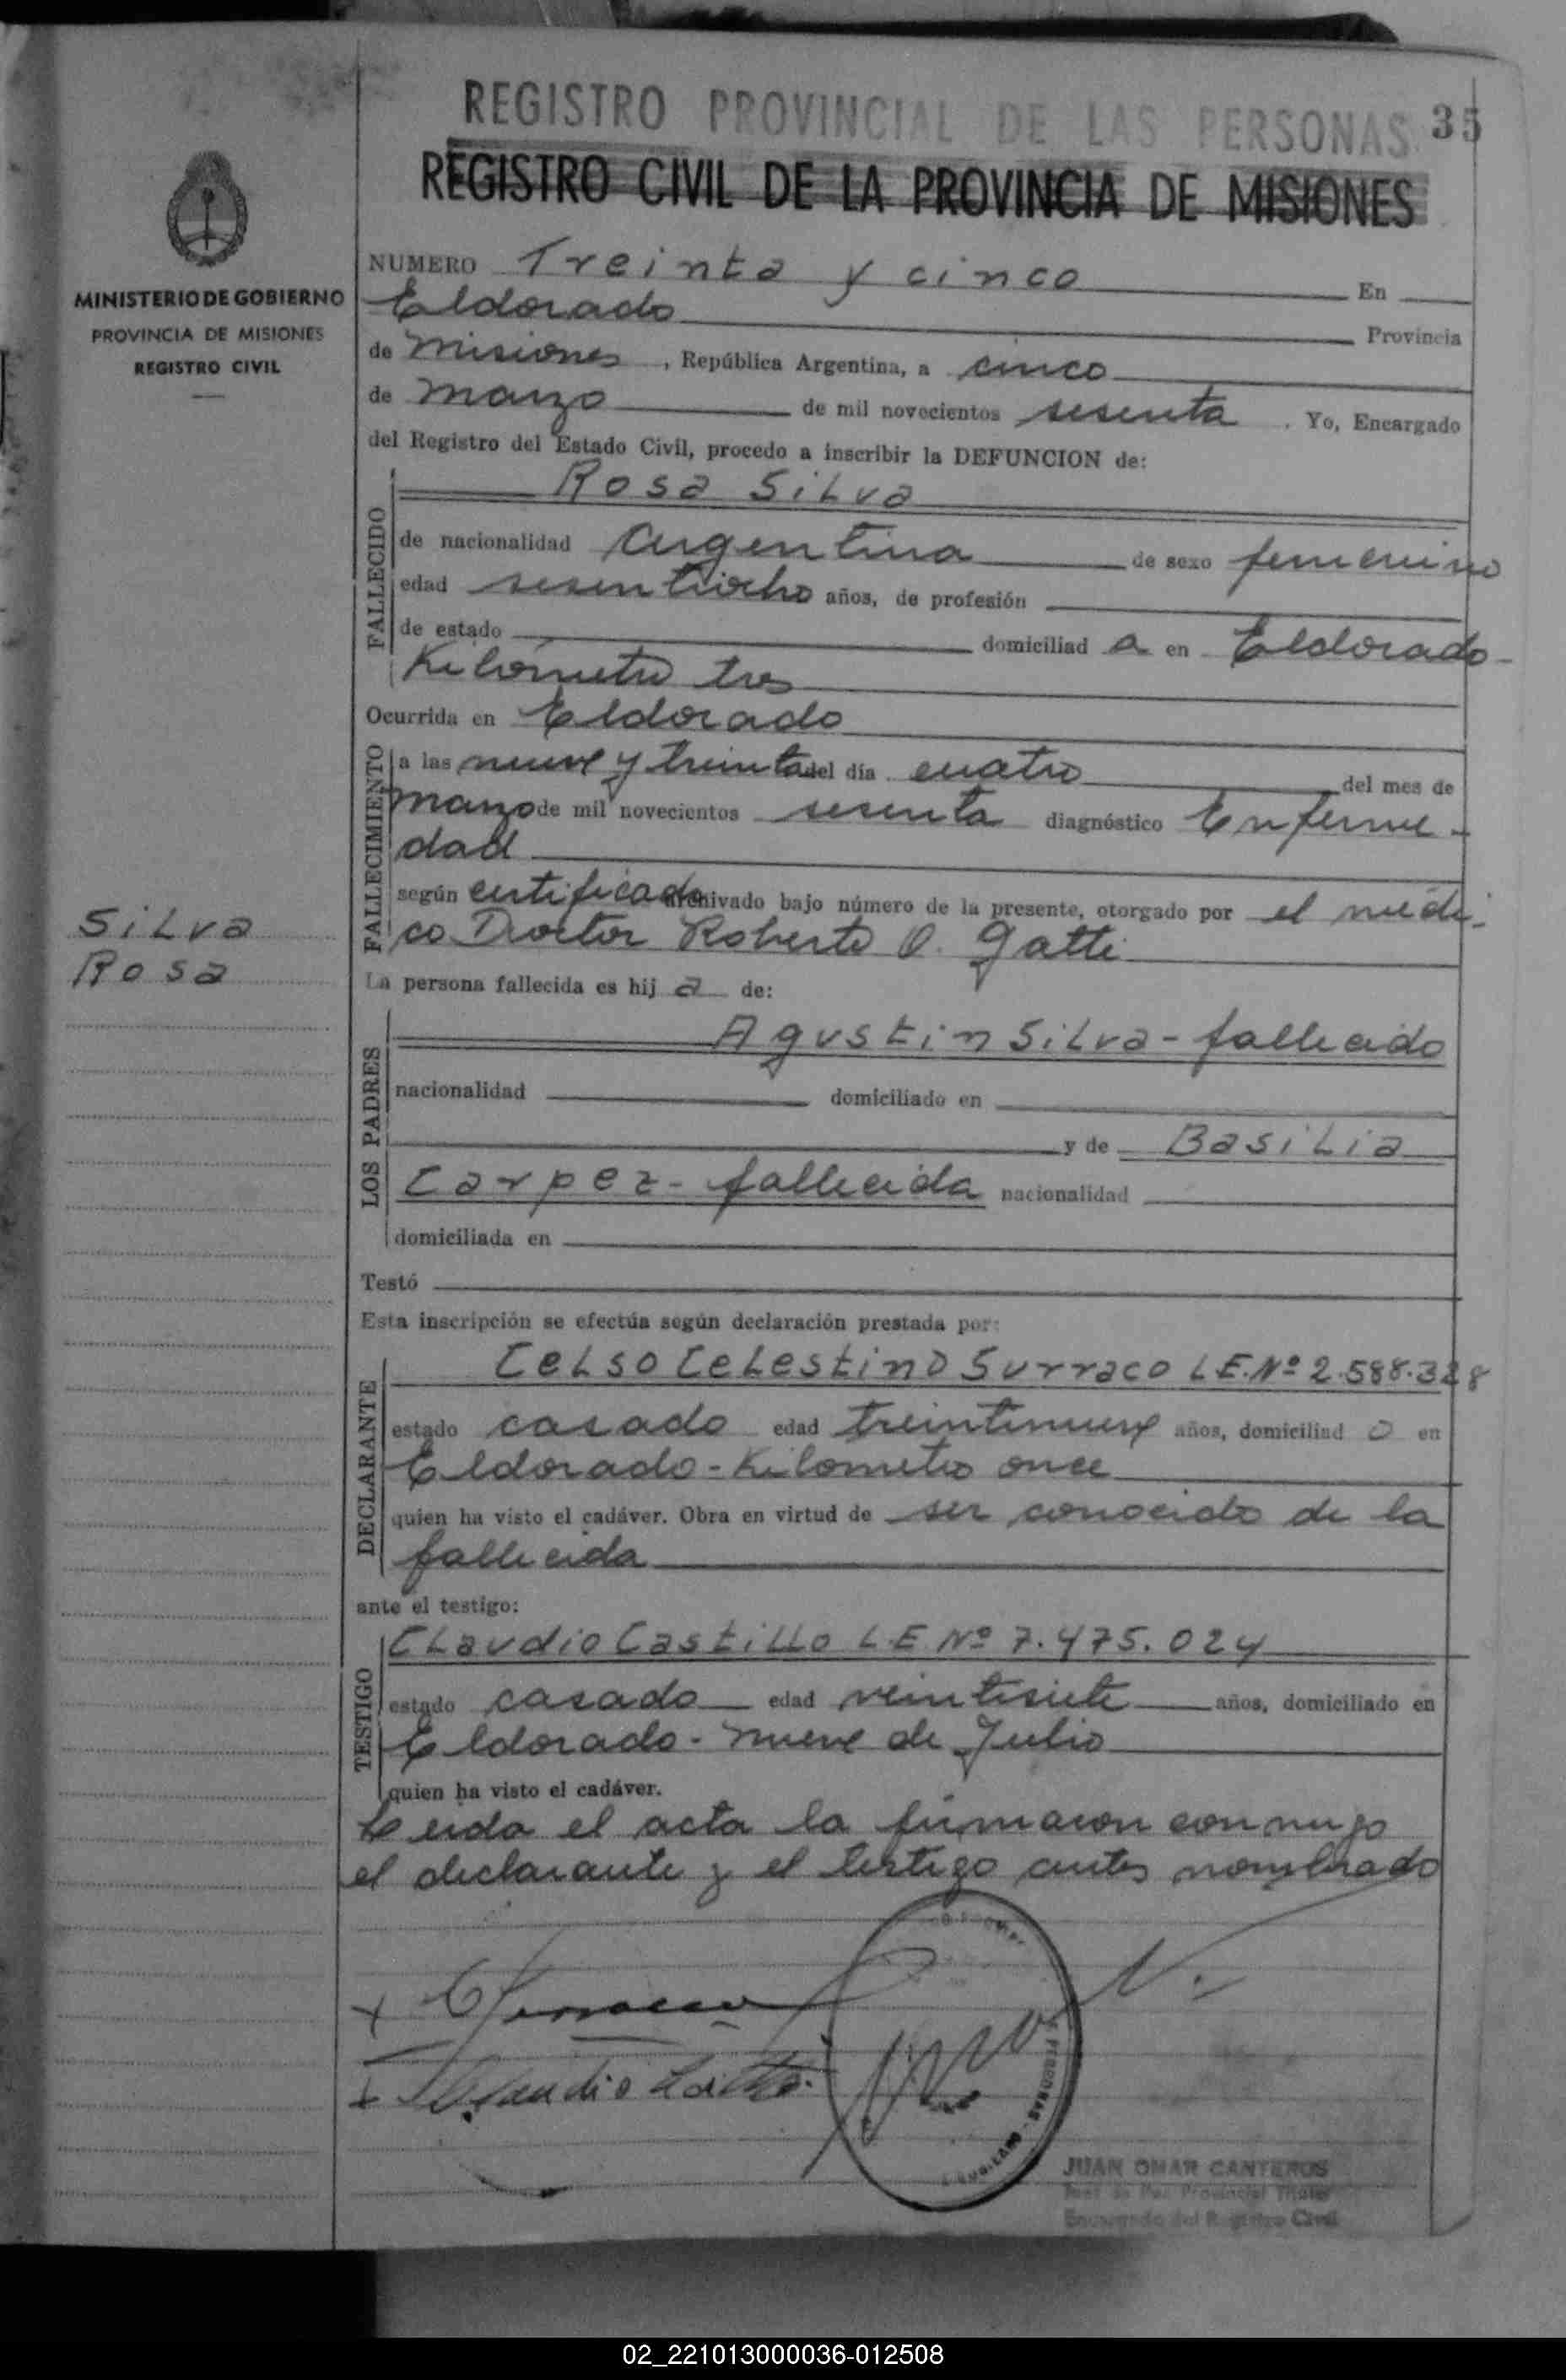 REGISTRO PROVINCIAL DE LAS PERSONAS 35
REGISTRO CIVIL DE LA PROVINCIA DE MISIONES
MINISTERIO DE GOBIERNO
PROVINCIA DE MISIONES
REGISTRO CIVIL
NUMERO Treinta y cinco En
Eldorado Provincia
de Misiones, República Argentina, a cinco
de marzo de mil novecientos sesenta. Yo, Encargado
del Registro del Estado Civil, procedo a inscribir la DEFUNCION de:
Rosa Silva
FALLECIDO
de nacionalidad Argentina de sexo femenino
edad sesentiocho años, de profesión
de estado domiciliad a en Eldorado-
Kilómetro tres
Ocurrida en Eldorado
FALLECIMIENTO
a las nueve y treinta del día cuatro del mes de
marzo de mil novecientos sesenta diagnóstico Enferme-
dad
según certificado archivado bajo número de la presente, otorgado por el médi-
co Doctor Roberto O. Gatti
Silva
Rosa
La persona fallecida es hij a de:
LOS PADRES
Agustin Silva - fallecido
nacionalidad domiciliado en
y de Basilia
Carpez - fallecida nacionalidad
domiciliada en
Testó
Esta inscripción se efectúa según declaración prestada por:
DECLARANTE
Celso Celestino Surraco L.E. Nº 2.588.328
estado casado edad treintinueve años, domiciliad o en
Eldorado - Kilometro once
quien ha visto el cadáver. Obra en virtud de ser conocido de la
fallecida
ante el testigo:
TESTIGO
Claudio Castillo L.E. Nº 7.475.024
estado casado edad veintisiete años, domiciliado en
Eldorado - nueve de Julio
quien ha visto el cadáver.
Leida el acta la firmaron conmigo
el declarante y el testigo antes nombrado
JUAN OMAR CANTEROS
Juez de Paz Provincial Titular
Encargado del Registro Civil
02_221013000036-012508